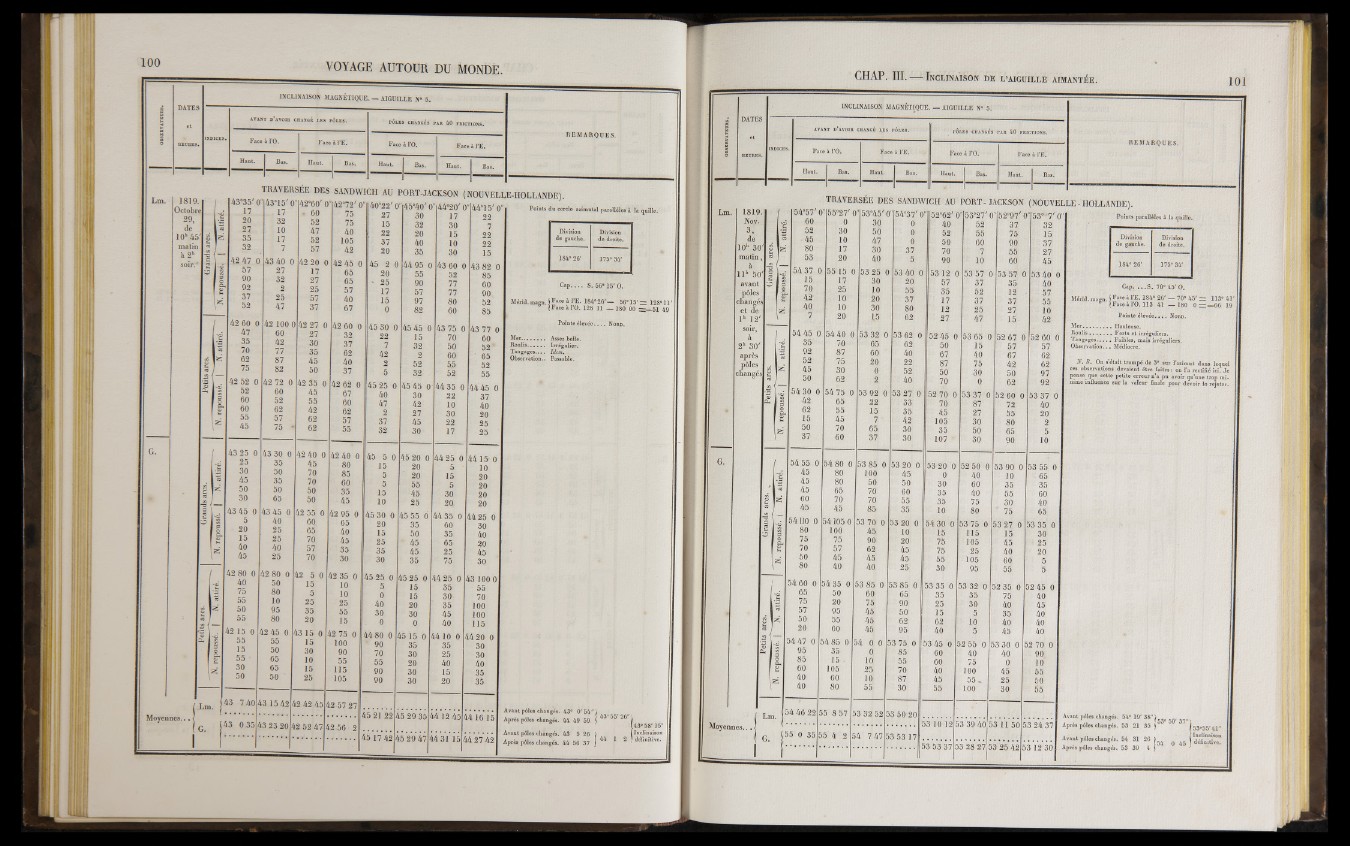 100
VOYAGE AUTOUR DU MONDE.
INCLINAISON MAGNÉTIQUE. — AIGUILLE N° 5.
OBSERVATEURS.
DATES
et
HEURES.
INDICES.
AVANT D'AVOIR CHANGÉ LES PÔLES.
PÔLES CHANGÉS PAR 40 FRICTIONS.
REMARQUES.
Face à l'O. Face à l'E. Face à l'O. Face à l'E.
Haut. Bas. Haut. Bas. Haut. Bas. Haut. Bas.
TRAVERSÉE DES SANDWICH AU PORT-JACKSON (NOUVELLE-HOLLANDE).
Lm.
1819.
Octobre
29,
de
10h 45'
matin
à 2h
soir.
Grands arcs.
N. attiré.
43°35' 0" 43°15' 0" 42°60' 0" 42°72' 0" 40°22' 0" 45°40' 0" 44°20' 0" 44°15' 0"
17 17 60 75 27 30 17 22
20 32 52 75 15 32 30 7
27 10 47 40 22 20 15 22
35 17 52 105 37 40 10 22
32 7 57 42 20 35 30 15
N. repoussé.
42 47 0 43 40 0 42 20 0 42 45 0 45 2 0 44 95 0 43 60 0 43 82 0
57 27 17 65 20 55 52 85
90 32 27 65 25 90 77 60
92 2 25 57 17 57 77 90
37 25 57 40 15 97 80 52
52 47 37 67 0 82 60 85
Petits arcs.
N. attiré.
42 60 0 42 100 0 42 27 0 42 60 0 45 30 0 45 45 0 43 75 0 43 77 0
47 60 27 32 22 15 70 60
35 42 30 37 7 32 50 52
70 77 35 62 42 2 60 65
62 87 45 40 2 52 55 52
75 82 50 37 5 32 52 55
N. repoussé.
42 52 0 42 72 0 42 35 0 42 62 0 45 25 0 45 45 0 44 35 0 44 45 0
52 60 45 67 40 30 22 37
60 52 55 60 47 42 10 40
60 62 42 62 2 27 30 20
55 57 62 57 37 45 22 25
45 75 62 55 32 30 17 25
G.
Grands arcs.
N. attiré.
43 25 0 43 30 0 42 40 0 42 40 0 45 5 0 45 20 0 44 25 0 44 15 0
25 35 45 80 15 20 5 10
30 50 70 85 5 20 15 20
45 35 70 60 5 55 5 20
50 50 50 35 15 45 30 20
30 65 50 45 10 25 20 20
N. repoussé.
43 45 0 43 45 0 42 55 0 42 95 0 45 30 0 45 55 0 44 35 0 44 25 0
5 40 60 65 20 35 60 30
20 25 65 40 15 50 35 40
15 25 70 45 25 45 65 40
40 40 57 35 35 45 25 45
45 25 70 30 30 35 75 30
Petits arcs.
N. attiré.
42 80 0 42 80 0 42 5 0 42 35 0 45 25 0 45 25 0 44 25 0 43 100 0
40 50 15 10 5 15 35 55
75 80 5 10 0 15 30 70
55 10 25 25 40 20 35 100
50 95 35 55 30 30 45 100
55 80 20 15 0 0 40 115
N. repoussé.
42 15 0 42 45 0 43 15 0 42 75 0 44 80 0 45 15 0 44 10 0 44 20 0
55 55 15 100 90 35 35 30
15 50 30 90 70 30 25 30
55 65 10 55 55 20 40 40
30 65 15 115 90 30 15 35
50 50 25 105 90 30 20 35
Moyennes...
Lm. 43 7 40 43 15 42 42 42 45 42 57 27
45 21 22 45 29 35 44 12 45 44 16 15
G. 43 0 35 43 25 20 42 52 47 42 56 2
45 17 42 45 29 47 44 31 15 44 27 42
Points du cercle azimutal parallèles à la quille.
Division de gauche. Division de droite.
184° 26' 175° 35'
Cap.... S. 50° 15' O.
Mérid. magn. Face à l'E. 184° 26' — 56° 15' = 128° 11'
Face à l'O. 128 11 — 180 00 = —51 49
Pointe élevée.... Nord.
Mer......... Assez belle.
Roulis....... Irrégulier.
Tangages.... Idem.
Observation.. Passable.
Avant pôles changés. 43° 0' 54"
Après pôles changés. 44 49 59
43° 55' 26"
Avant pôles changés. 43 3 26
Après pôles changés. 44 56 37
44 1 2
43° 58' 15"
Inclinaison
définitive.
CHAP. III. — INCLINAISON DE L'AIGUILLE AIMANTÉE.
101
INCLINAISON MAGNÉTIQUE. — AIGUILLE N° 5.
OBSERVATEURS.
DATES
et
HEURES.
INDICES.
AVANT D'AVOIR CHANGÉ LES PÔLES.
PÔLES CHANGÉS PAR 40 FRICTIONS.
REMARQUES.
Face à l'O. Face à l'E. Face à l'O. Face à l'E.
Haut. Bas. Haut. Bas. Haut. Bas. Haut. Bas.
TRAVERSÉE DES SANDWICH AU PORT-JACKSON (NOUVELLE-HOLLANDE).
Lm.
1819.
Nov.
3,
de
10h 30'
matin,
à
11h 50'
avant
pôles
changés
et de
1h 12'
soir,
à
2h 30'
après
pôles
changés
Grands arcs.
N. attiré.
54°57' 0" 55°27' 0" 53°45' 0" 54°37' 0" 52°62' 0" 53°27' 0" 52°97' 0" 53° 7' 0"
60 0 30 0 40 52 37 32
52 30 50 0 52 55 75 15
45 10 47 0 50 60 90 37
80 17 30 37 70 7 55 27
53 20 40 5 90 10 60 45
N. repoussé.
54 37 0 55 15 0 53 25 0 53 40 0 53 12 0 53 57 0 53 57 0 53 40 0
15 17 30 20 57 37 35 40
70 25 10 55 35 52 12 37
42 10 20 37 17 37 37 55
40 10 30 80 12 25 27 10
7 20 15 62 27 47 15 42
Petits arcs.
N. attiré.
54 45 0 54 40 0 53 32 0 53 62 0 52 45 0 53 65 0 52 67 0 52 60 0
55 70 65 62 50 15 57 57
92 87 60 40 67 40 67 62
52 75 20 22 87 75 42 62
45 30 0 52 50 30 50 97
50 62 2 40 70 0 62 92
N. repoussé.
54 30 0 54 75 0 53 92 0 53 27 0 52 70 0 53 37 0 52 60 0 53 37 0
42 65 22 33 70 87 72 40
62 55 15 35 45 27 55 20
15 45 7 42 105 30 80 2
50 70 65 30 35 50 65 5
37 60 37 30 107 30 90 10
G.
Grands arcs.
N. attiré.
54 55 0 54 80 0 53 85 0 53 20 0 53 20 0 52 50 0 53 90 0 53 55 0
45 80 100 45 0 40 10 65
45 80 50 50 30 60 35 35
45 65 70 60 35 40 55 60
60 70 70 55 35 75 30 40
45 45 85 35 10 80 75 65
N. repoussé.
54 110 0 54 105 0 53 70 0 53 20 0 54 30 0 53 75 0 53 27 0 53 35 0
80 100 45 10 15 115 15 30
75 75 90 20 75 105 45 25
70 57 62 45 75 25 40 20
50 45 45 45 55 105 60 5
80 40 40 25 30 95 55 5
Petits arcs.
N. attiré.
54 60 0 54 35 0 53 85 0 53 85 0 53 35 0 53 32 0 52 35 0 52 45 0
65 50 60 65 35 35 75 40
75 20 75 90 25 30 40 45
57 95 45 50 15 5 35 40
50 35 45 62 62 10 40 40
20 60 45 95 40 5 45 40
N. repoussé.
54 47 0 54 85 0 54 0 0 53 75 0 53 45 0 52 55 0 53 30 0 52 70 0
95 35 0 85 60 40 40 90
85 15 10 55 60 75 0 10
60 105 25 70 40 100 45 55
40 60 10 87 45 55 25 50
40 80 55 30 55 100 30 55
Moyennes...
Lm. 54 46 22 55 8 57 53 32 52 53 50 20
53 10 12 53 39 40 53 11 50 53 24 37
G. 55 0 35 55 4 2 54 7 47 53 53 17
53 53 37 53 28 27 53 25 42 53 12 30
Points parallèles à la quille.
Division de gauche. Division de droite.
184° 26' 175° 35'
Cap. ...S. 70° 45' O.
Mérid. magn. Face à l'E. 184° 26' — 70° 45' = 113° 41'
Face à l'O. 113 41 — 180 0 = —66 19
Pointe élevée.... Nord.
Mer......... Houleuse.
Roulis....... Forts et irréguliers.
Tangages..... Faibles, mais irréguliers.
Observation... Médiocre.
N. B. On s'était trompé de 3° sur l'azimut dans lequel
ces observations devaient être faites: on l'a rectifié ici. Je
pense que cette petite erreur n'a pu avoir qu'une trop mi-
nime influence sur la valeur finale pour devoir la rejeter.
Avant pôles changés. 54° 19' 38"
Après pôles changés. 53 21 35
53° 50' 37"
Avant pôles changés. 54 31 26
Après pôles changés. 53 30 4
54 0 45
53° 55' 41"
Inclinaison
définitive.